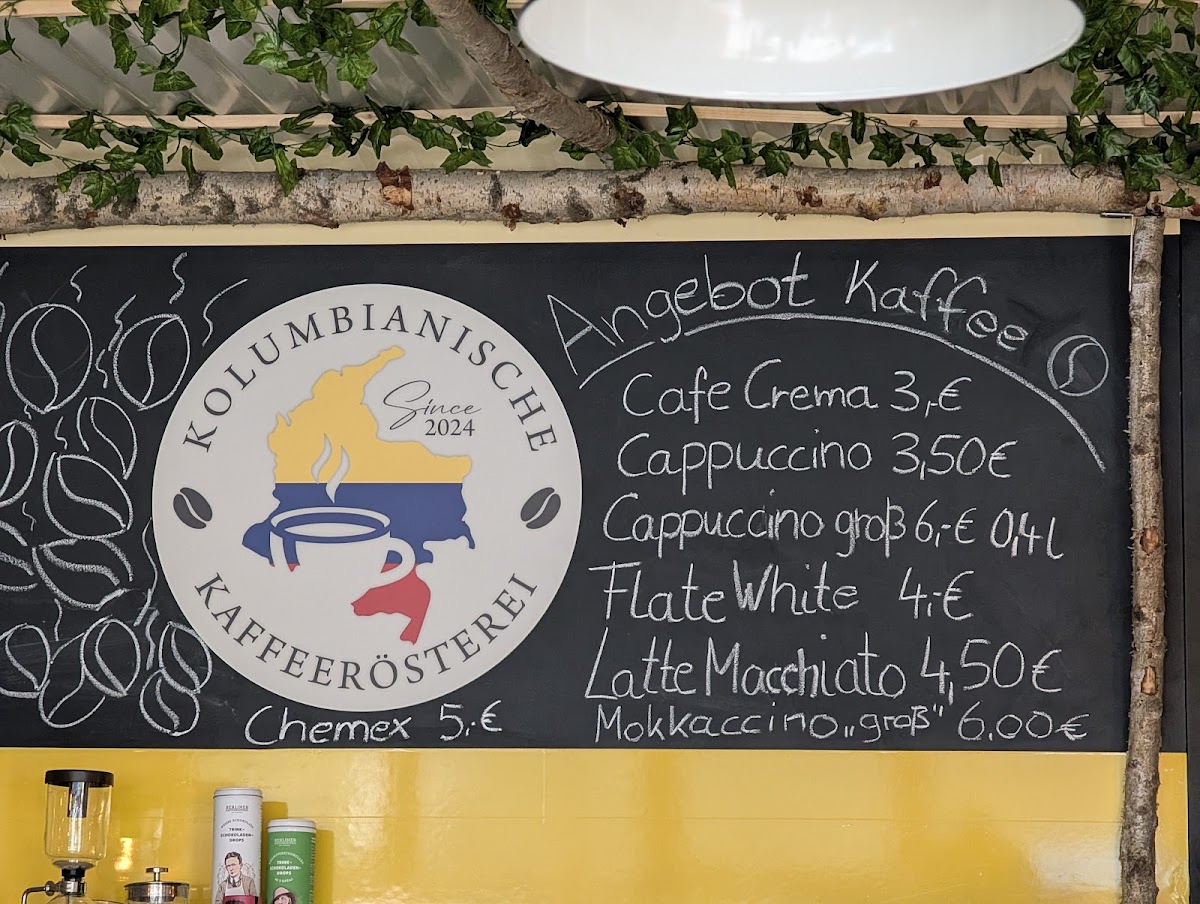 KOLUMBIANISCHE
Since
2024
KAFFEERÖSTEREI
Chemex 5,-€
Angebot Kaffee
Cafe Crema 3,-€
Cappuccino 3,50€
Cappuccino groß 6,-€ 0,4l
Flate White 4,-€
Latte Macchiato 4,50€
Mokkaccino „groß" 6.00€
BERLINER
TRINK-
SCHOKOLADEN-
DROPS
BERLINER
TRINK-
SCHOKOLADEN-
DROPS